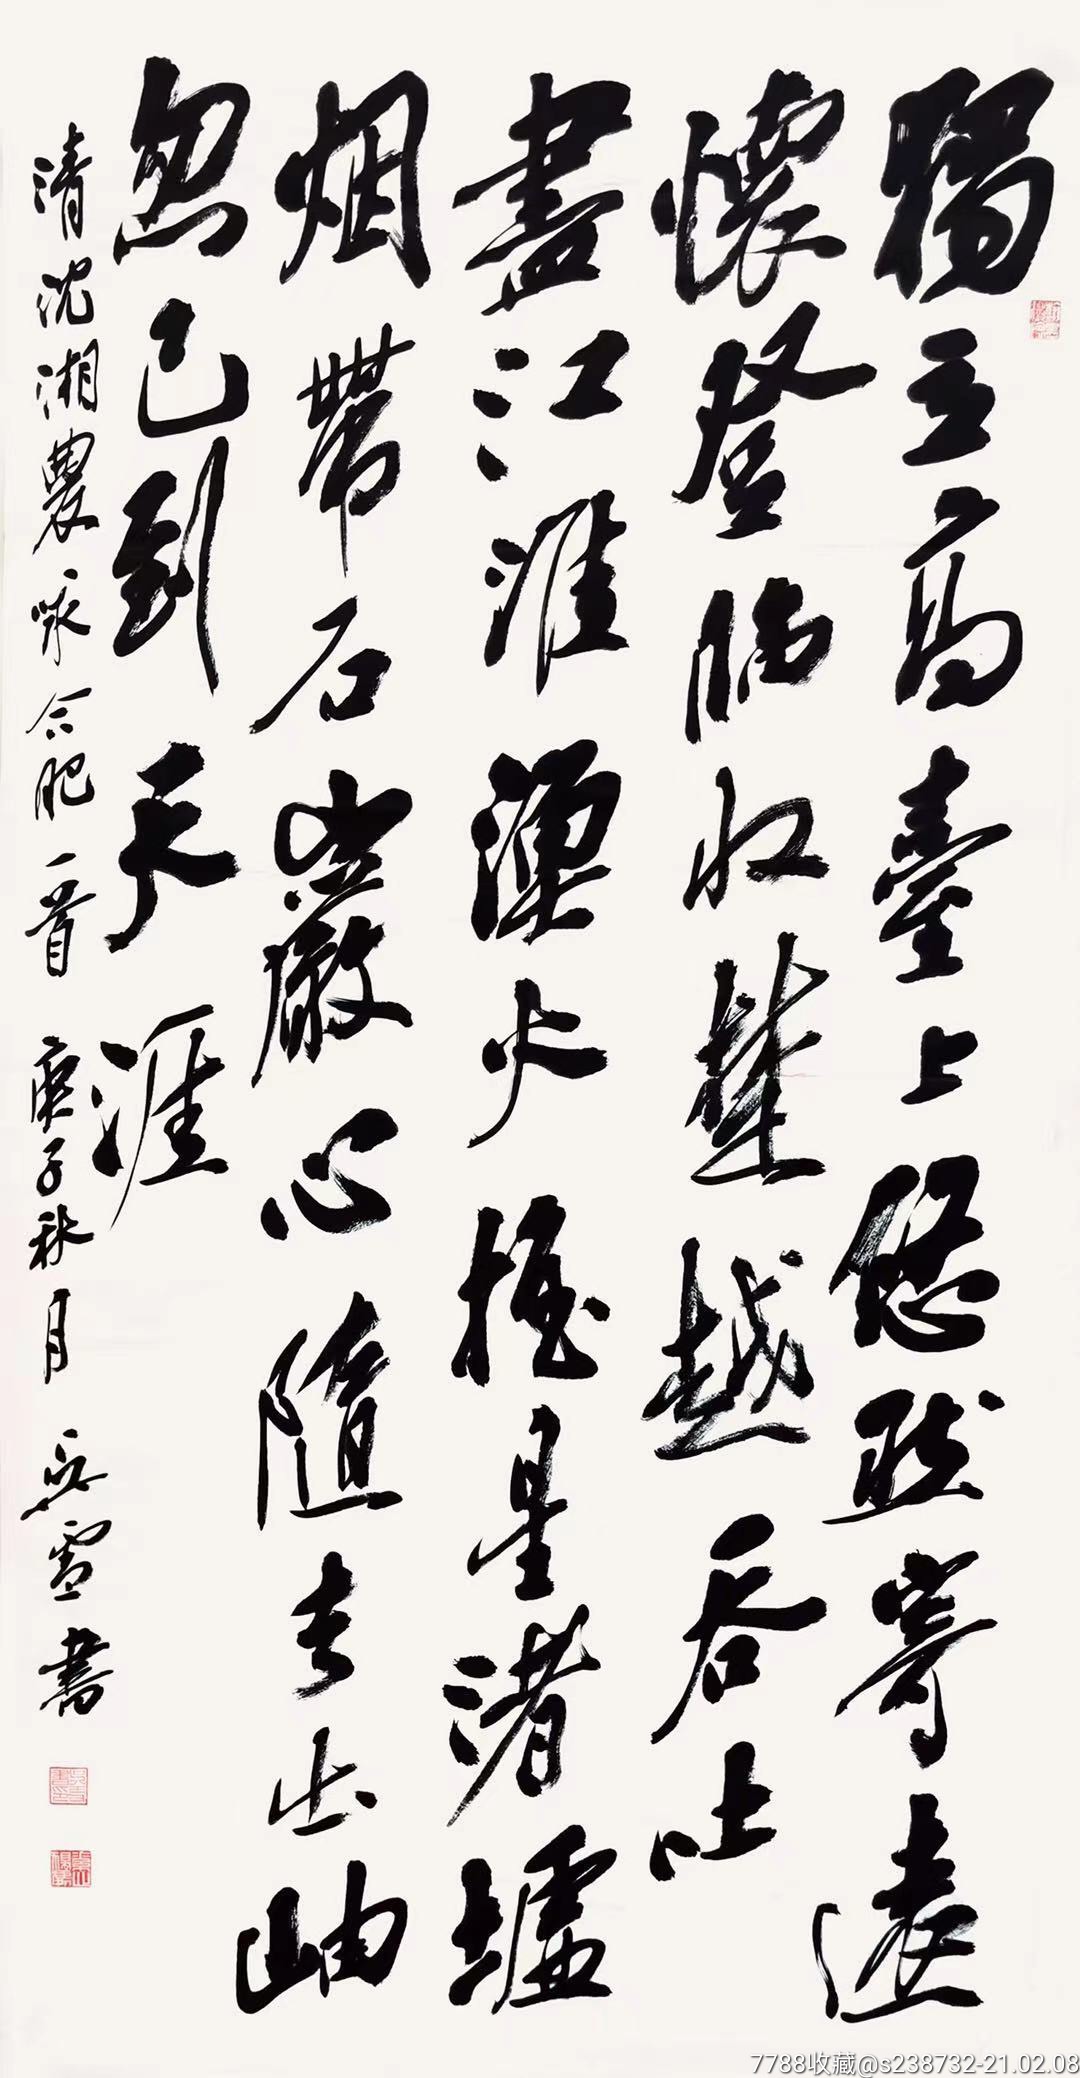 獨立高臺上悠然寄遠
懷登臨收楚越吞吐
盡江淮漁火搖星渚墟
烟帶石巖心隨去出岫
忽已到天涯
清沈湘農詠合肥一首 庚子秋月 岳雲書
7788收藏@s238732-21.02.08